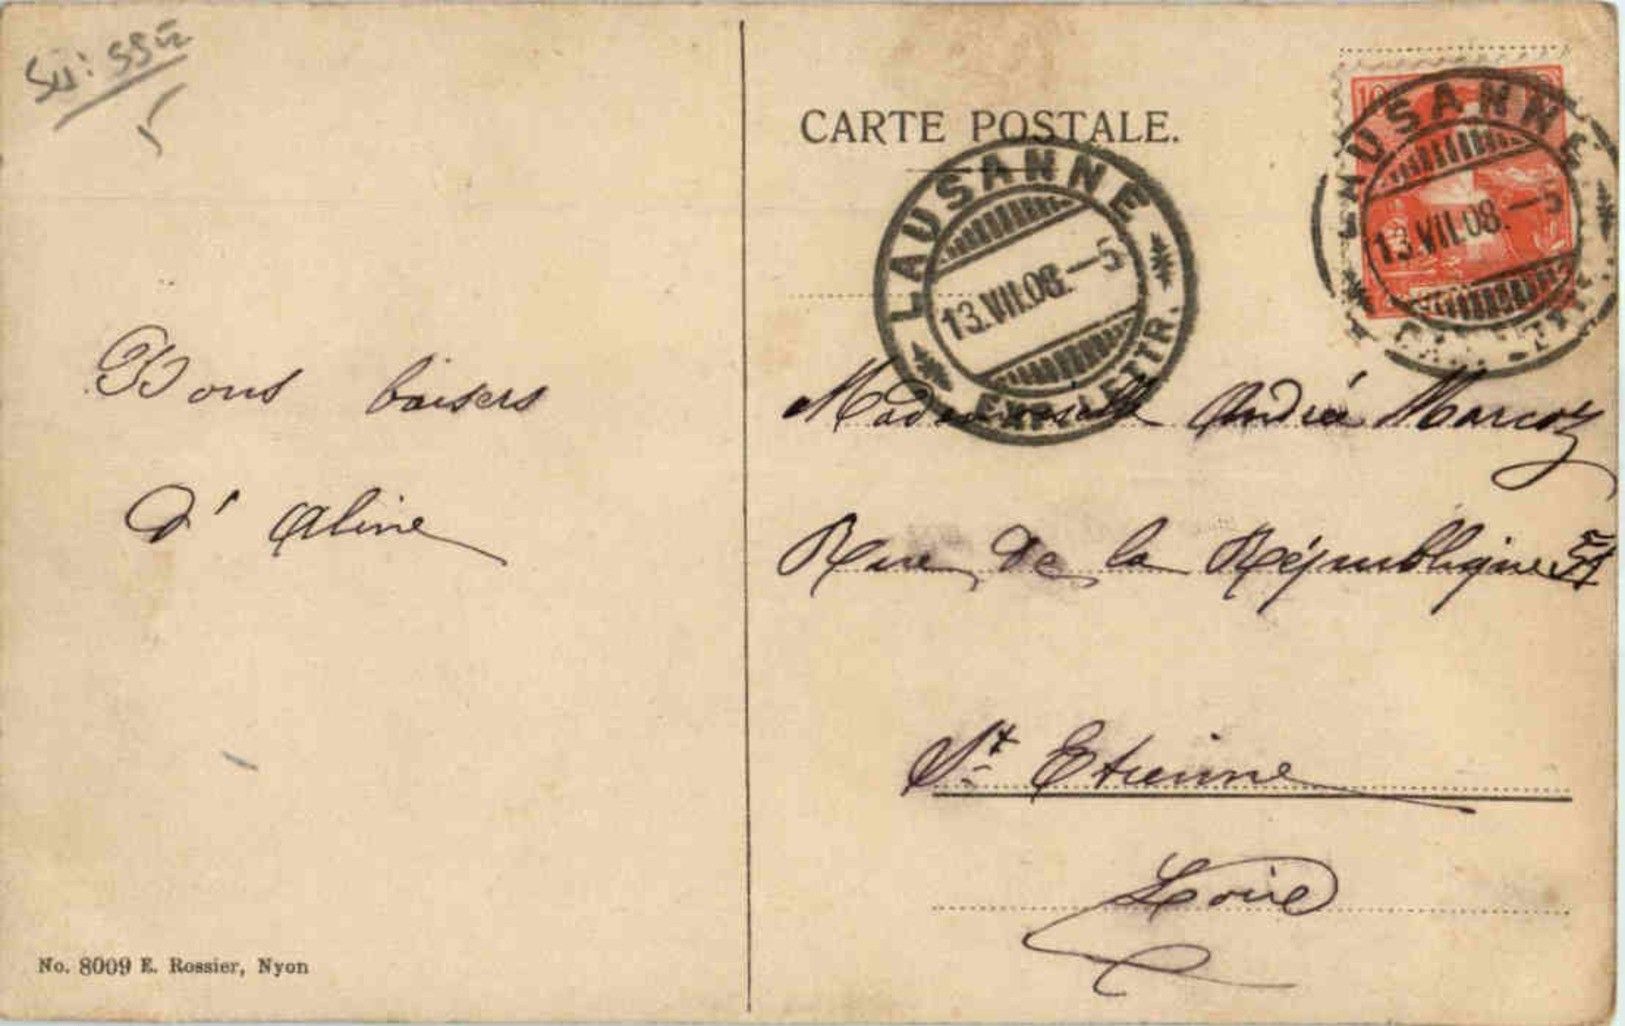 Suisse
5
CARTE POSTALE.
10
LAUSANNE
13.VII.08.–5
EXP. LETTR.
LAUSANNE
13.VII.08.–5
EXP. LETTR.
Bons baisers
d'Aline
Mademoiselle Andrée Marcoz
Rue de la République
St Etienne
Loire
No. 8009 E. Rossier, Nyon